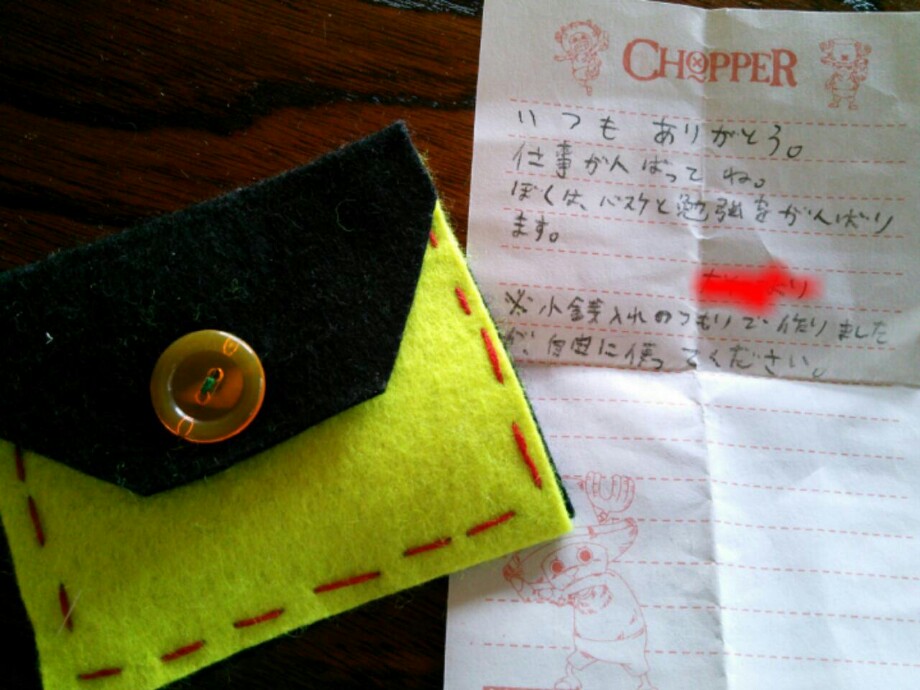 CHOPPER
いつも ありがとう。
仕事がんばってね。
ぼくは、バスケと勉強をがんばり
ます。
より
※小銭入れのつもりで作りました
が、自由に使ってください。